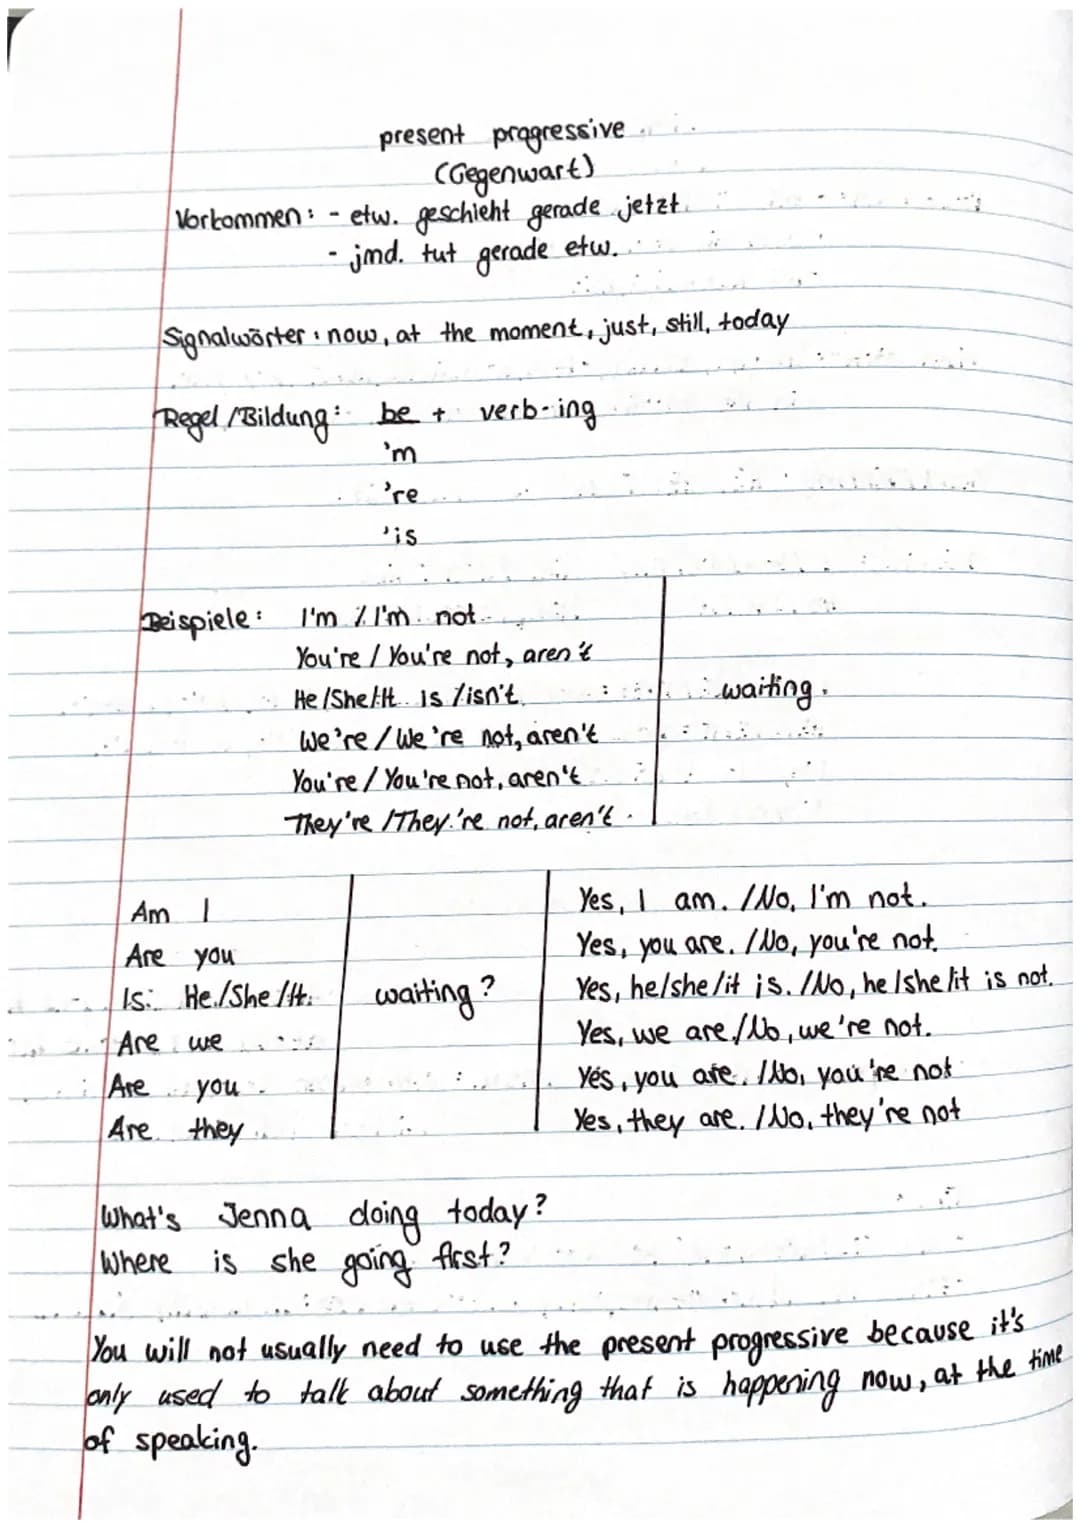 present progressive
(Gegenwart)
Vorkommen: - etw. geschieht gerade jetzt
- jmd. tut gerade etw.
Signalwörter: now, at the moment, just, still, today
Regel/Bildung: be + verb-ing
'm
're
'is
Beispiele: I'm / I'm not
You're / You're not, aren't
He/She/It is / isn't
We're / We're not, aren't
waiting.
You're / You're not, aren't
They're / They're not, aren't
Am I
Are you
Is He/She/It
Are we
Are you
Are they
waiting?
Yes, I am. /No, I'm not.
Yes, you are. /No, you're not.
Yes, he/she/it is. /No, he/she/it is not.
Yes, we are /No, we're not.
Yes, you are. /No, you're not
Yes, they are. /No, they're not
What's Jenna doing today?
Where is she going first?
You will not usually need to use the present progressive because it's
only used to talk about something that is happening now, at the time
of speaking.